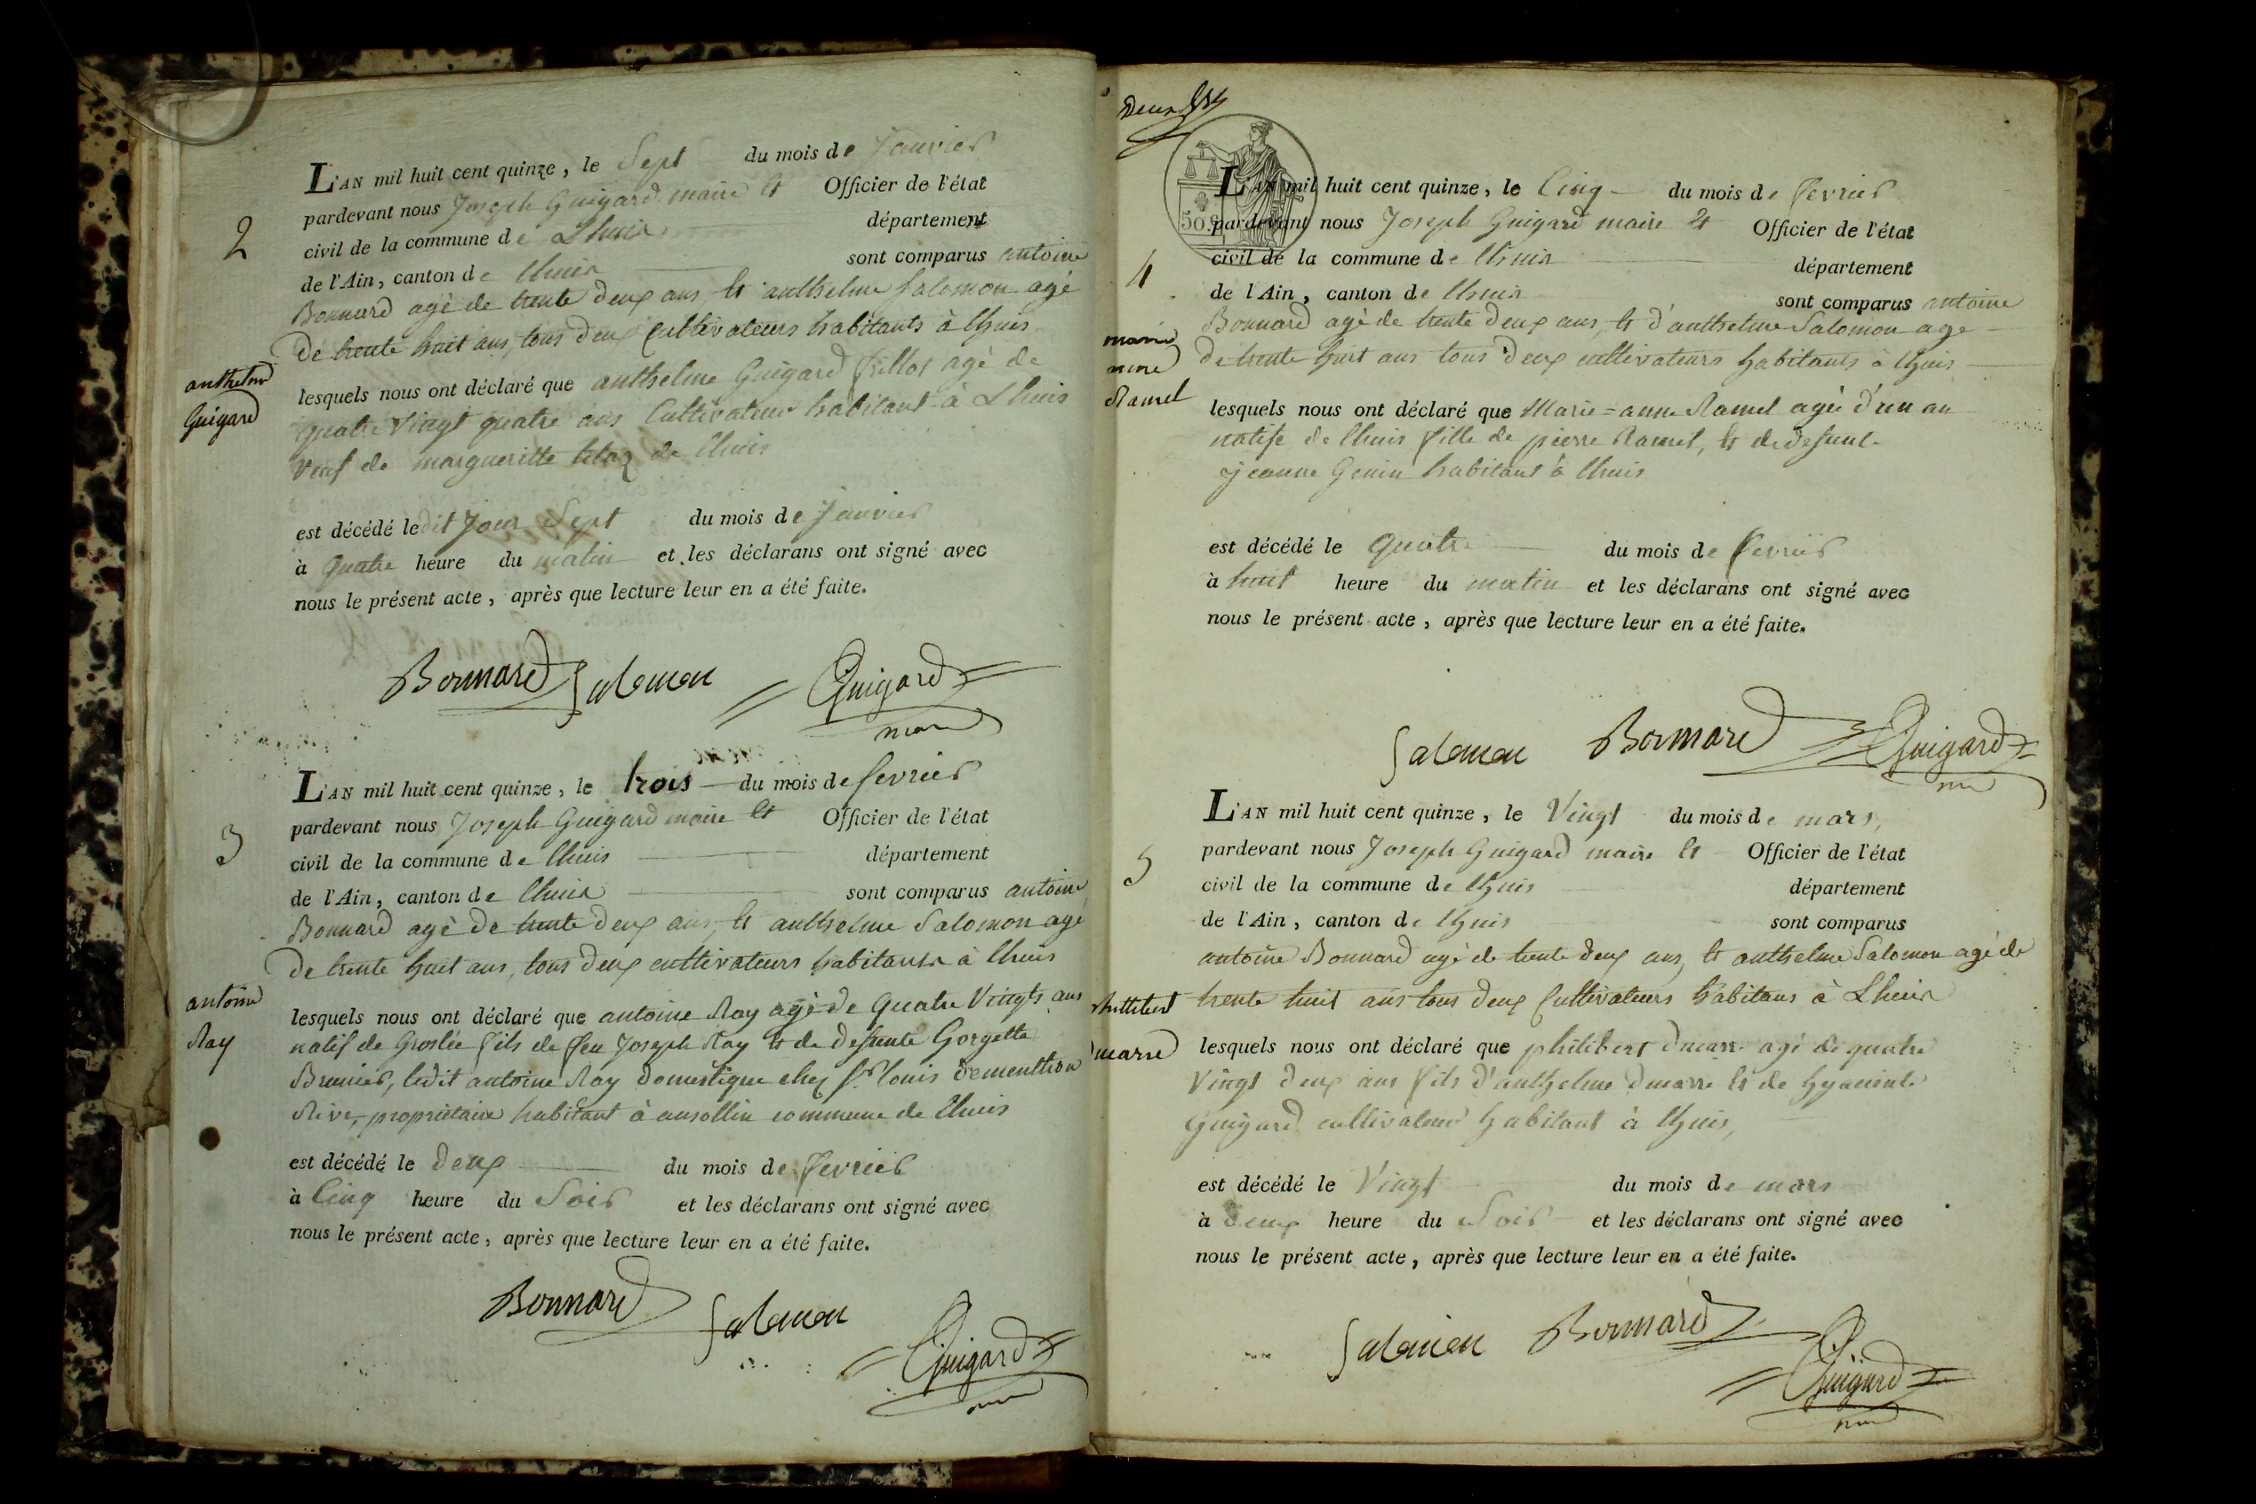 L'AN mil huit cent quinze, le Sept du mois de Janvier
pardevant nous Joseph Guigard maire et Officier de l'état
civil de la commune de Lhuis département
de l'Ain, canton de lhuis sont comparus antoine
Bonnard agé de trente deux ans, et anthelme Salomon agé
De trente huit ans, tous deux Cultivateurs habitants à lhuis
2
anthelme
Guigard
lesquels nous ont déclaré que anthelme Guigard fillot agé de
quatre Vingt quatre ans Cultivateur habitant à Lhuis
veuf de margueritte de lhuis
est décédé le dit Jour Sept du mois de Janvier
à quatre heure du matin et les déclarans ont signé avec
nous le présent acte, après que lecture leur en a été faite.
Bonnard Salomon Guigard
maire
L'AN mil huit cent quinze, le trois du mois de fevrier
pardevant nous Joseph Guigard maire et Officier de l'état
3
civil de la commune de lhuis département
de l'Ain, canton de lhuis sont comparus antoine
Bonnard agé de trente deux ans, et anthelme Salomon agé
De trente huit ans, tous deux cultivateurs habitants à lhuis
antoine
Ray
lesquels nous ont déclaré que antoine Ray agé de quatre Vingts ans
natif de Groslée fils de feu Joseph Ray et de Defunte Gorgette
Brunier, ledit antoine Ray domestique chez Sr louis Dementhon
Rive, propriétaire habitant à ansollin commune de lhuis
est décédé le deux du mois de fevrier
à Cinq heure du Soir et les déclarans ont signé avec
nous le présent acte, après que lecture leur en a été faite.
Bonnard Salomon
Guigard
deux
50 c
L'AN mil huit cent quinze, le Cinq du mois de fevrier
pardevant nous Joseph Guigard maire et Officier de l'état
civil de la commune de lhuis département
4
de l'Ain, canton de lhuis sont comparus antoine
Bonnard agé de trente deux ans, et d'anthelme Salomon age
De trente huit ans tous deux cultivateurs habitants à lhuis
marie
anne
Ramel
lesquels nous ont déclaré que Marie=anne Ramel agée d'un an
natife de lhuis fille de pierre Ramel, et de defunte
jeanne Genin habitant à lhuis
est décédé le quatre du mois de fevrier
à huit heure du matin et les déclarans ont signé avec
nous le présent acte, après que lecture leur en a été faite.
Salomon Bonnard Guigard
L'AN mil huit cent quinze, le Vingt du mois de mars,
pardevant nous Joseph Guigard maire et Officier de l'état
5
civil de la commune de lhuis département
de l'Ain, canton de lhuis sont comparus
antoine Bonnard agé de trente deux ans, et anthelme Salomon agé de
trente huit ans tous deux Cultivateurs habitans à Lhuis
philibert
Dmarre
lesquels nous ont déclaré que philibert Dmarre agé de quatre
Vingt deux ans fils d'anthelme Dmarre et de hyacinte
Guigard cultivateur habitant à lhuis,
est décédé le Vingt du mois de mars
à deux heure du Soir et les déclarans ont signé avec
nous le présent acte, après que lecture leur en a été faite.
Salomon Bonnard
Guigard